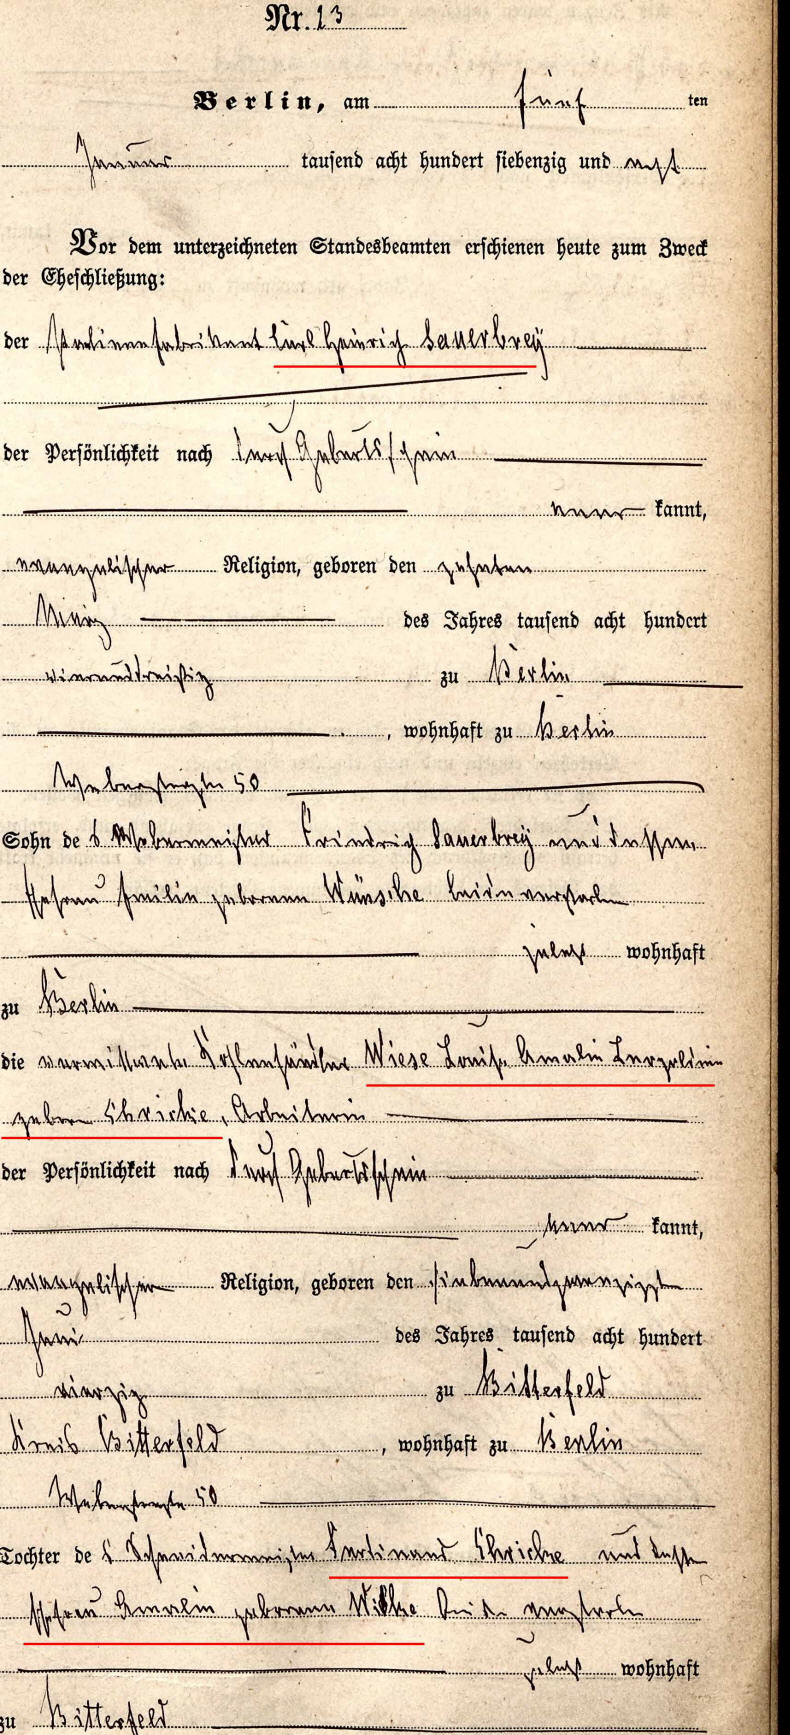 Nr. 13
Berlin, am fünf ten
Januar tausend acht hundert siebenzig und acht
Vor dem unterzeichneten Standesbeamten erschienen heute zum Zweck
der Eheschließung:
der Carl Heinrich Sauerbrey
der Persönlichkeit nach durch Geburtsschein
aner kannt,
evangelischer Religion, geboren den zehnten
März des Jahres tausend acht hundert
vierunddreißig zu Berlin
, wohnhaft zu Berlin
Weberstraße 50
Sohn des Webermeister Friedrich Sauerbrey und dessen
Ehefrau Emilie geborenen Wünsche beide verstorben
zuletzt wohnhaft
zu Berlin
die verwittwete Kohlenhändler Wiese Louise Amalie
geboren Ehricke, Arbeiterin
der Persönlichkeit nach durch Geburtsschein
aner kannt,
evangelischer Religion, geboren den siebenundzwanzigsten
Juni des Jahres tausend acht hundert
vierzig zu Bitterfeld
Kreis Bitterfeld, wohnhaft zu Berlin
Weberstraße 50
Tochter des Schneidermeister Ferdinand Ehricke und dessen
Ehefrau Amalie geborenen Wilke beide verstorben
zuletzt wohnhaft
zu Bitterfeld